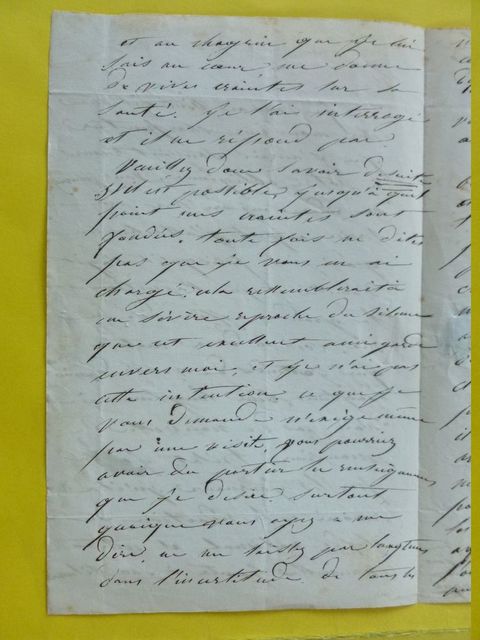 et au chagrin que je lui
sais au cœur me donne
de vives craintes sur sa
santé. Je l'ai interrogé
et il ne répond pas.
Veuillez donc savoir de suite
S'il est possible, jusqu'à quel
point mes craintes sont
fondées. toute fois ne dites
pas que je vous en ai
chargé; cela ressemblerait à
un sévère reproche du silence
que cet excellent ami garde
envers moi, et je n'ai pas
cette intention. ce que je
vous demande n'exige même
pas une visite, vous pourriez
avoir du portier les renseignemens
que je désire surtout
quoique vous ayez à me
dire, ne me laissez pas longtems
dans l'incertitude de tous les